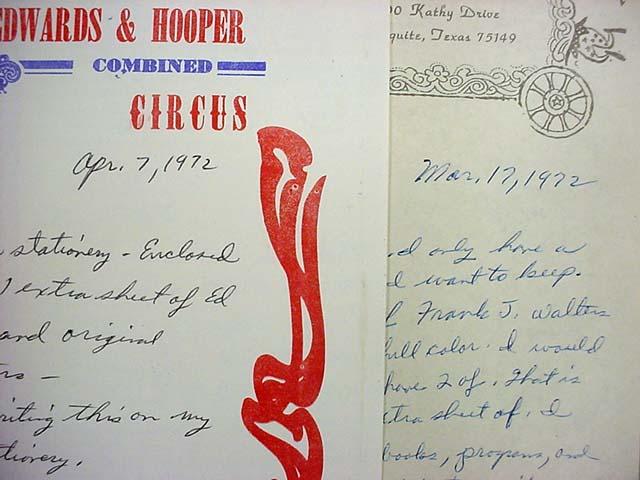 EDWARDS & HOOPER
COMBINED
CIRCUS
Apr. 7, 1972
stationery - Enclosed
1 extra sheet of Ed
and original
rs -
riting this on my
tionery.
00 Kathy Drive
quite, Texas 75149
Mar. 17, 1972
d only have a
I want to keep.
f Frank J. Walters
full color. I would
have 2 of. That is
tra sheet of. I
books, programs, and